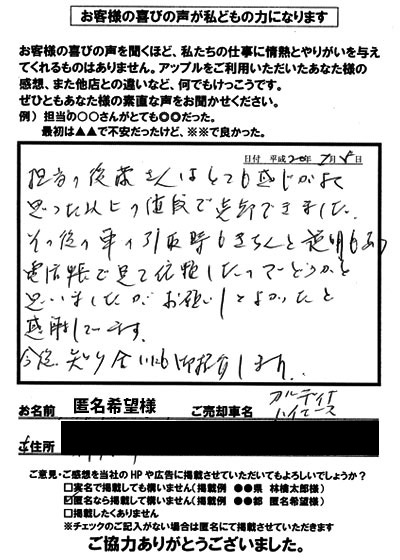 お客様の喜びの声が私どもの力になります
お客様の喜びの声を聞くほど、私たちの仕事に情熱とやりがいを与え
てくれるものはありません。アップルをご利用いただいたあなた様の
感想、また他店との違いなど、何でもけっこうです。
ぜひともあなた様の素直な声をお聞かせください。
例）担当の○○さんがとても◎◎だった。
最初は▲▲で不安だったけど、※※で良かった。
日付 平成20年7月5日
担当の後藤さんはとても感じがよく
思った以上の値段で売却できました。
その後の車の引取時もきちんと説明もあり
電話帳で見て依頼したのでどうかと
思いましたがお願いしてよかったと
感謝しています。
今後、知り合いにも御紹介します。
お名前 匿名希望様 ご売却車名 カルディナ
ハイエース
ご住所
ご意見・ご感想を当社のHPや広告に掲載させていただいてもよろしいでしょうか？
□実名で掲載しても構いません（掲載例 ●●県 林檎太郎様）
☑匿名なら掲載して構いません（掲載例 ●●都 匿名希望様）
□掲載したくありません
※チェックのご記入がない場合は匿名にて掲載させていただきます
ご協力ありがとうございました。